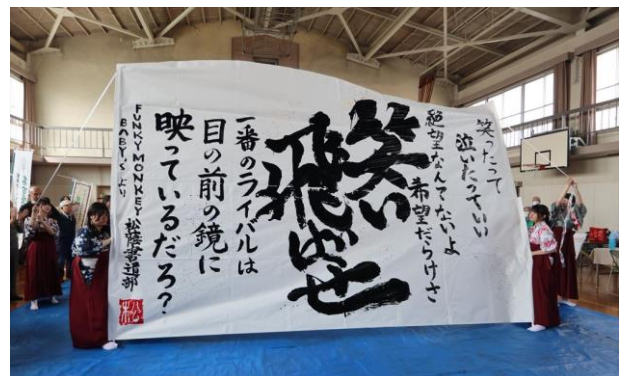 笑ったって
泣いたっていい
絶望なんてないよ
希望だらけさ
笑い
飛ばせ
一番のライバルは
目の前の鏡に
映っているだろ?
FUNKY MONKEY
BABYSより
松蔭書道部